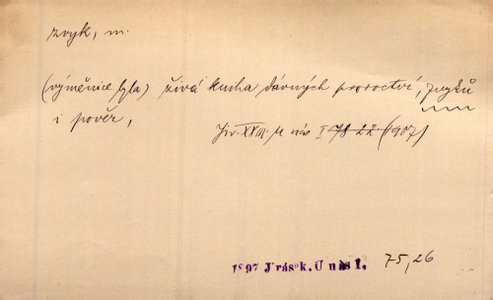 zvyk, m.
(výměnice byla) živá kniha dávných proroctví, zvyků
i pověr,
Jir. XXIII. U nás I 78 22 (1907)
1897 Jirásek, U nás I. 75, 26